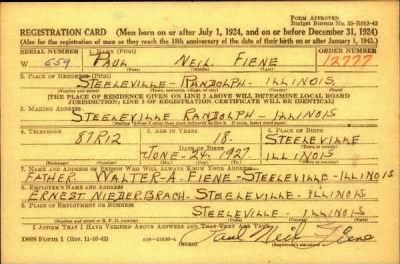 FORM APPROVED
Budget Bureau No. 33-R012-42
REGISTRATION CARD (Men born on or after July 1, 1924, and on or before December 31, 1924)
(Also for the registration of men as they reach the 18th anniversary of the date of their birth on or after January 1, 1943.)
SERIAL NUMBER 1. NAME (Print) ORDER NUMBER
W 659 PAUL NEIL FIENE 12777
(First) (Middle) (Last)
2. PLACE OF RESIDENCE (Print)
STEELEVILLE - RANDOLPH - ILLINOIS
[THE PLACE OF RESIDENCE GIVEN ON LINE 2 ABOVE WILL DETERMINE LOCAL BOARD
JURISDICTION; LINE 2 OF REGISTRATION CERTIFICATE WILL BE IDENTICAL]
3. MAILING ADDRESS
STEELEVILLE RANDOLPH - ILLINOIS
4. TELEPHONE 5. AGE IN YEARS 6. PLACE OF BIRTH
87R12 18 STEELEVILLE
DATE OF BIRTH
JUNE - 24, 1927 ILLINOIS
7. NAME AND ADDRESS OF PERSON WHO WILL ALWAYS KNOW YOUR ADDRESS
FATHER WALTER - A. FIENE - STEELEVILLE - ILLINOIS
8. EMPLOYER'S NAME AND ADDRESS
ERNEST NIEDERBRACH - STEELEVILLE - ILLINOIS
9. PLACE OF EMPLOYMENT OR BUSINESS
STEELEVILLE - ILLINOIS
I AFFIRM THAT I HAVE VERIFIED ABOVE ANSWERS AND THAT THEY ARE TRUE.
DSS Form 1 (Rev. 11-16-42) Paul Neil Fiene